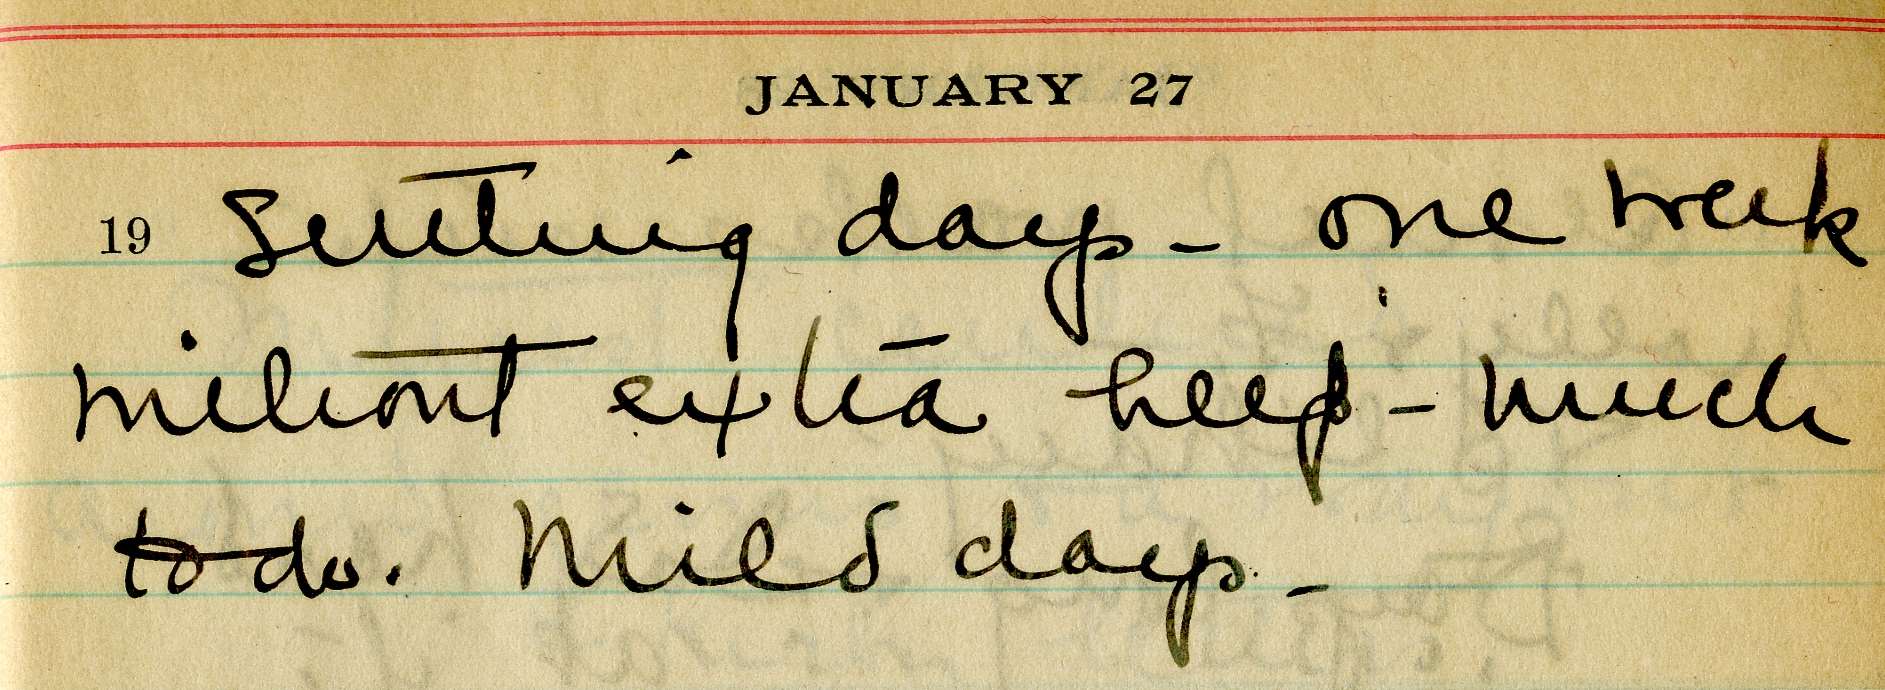 JANUARY 27
19 Settling days - one week
without extra help - much
to do. Mild days. -